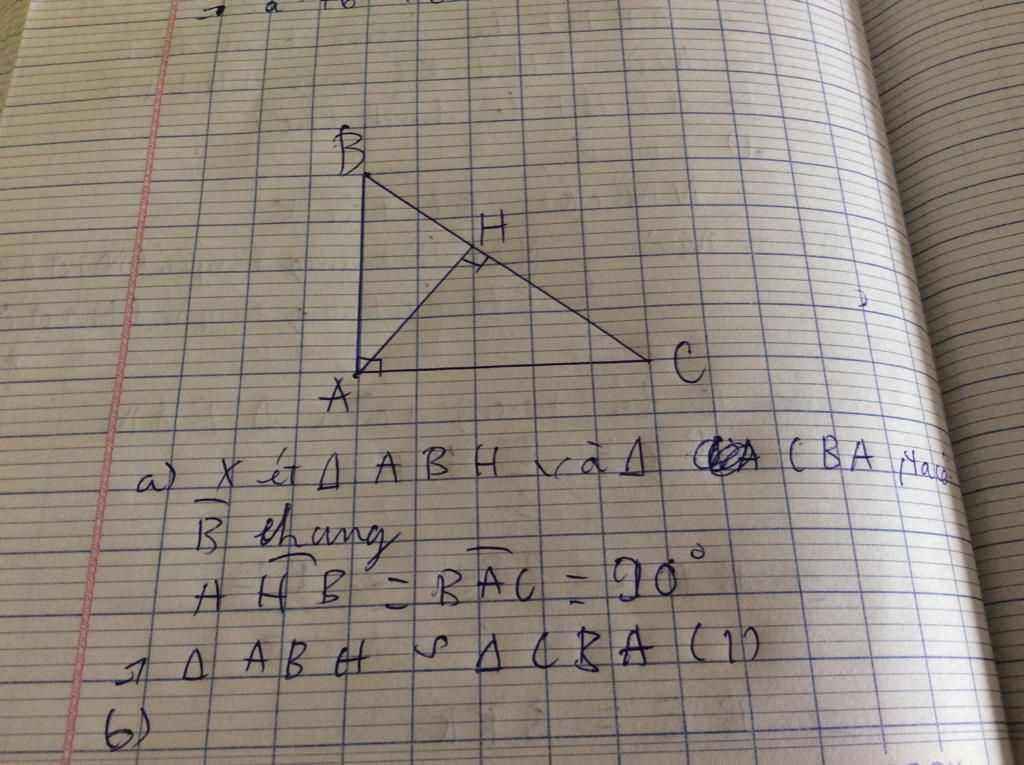 B
H
A
C
a) Xét Δ ABH và Δ CBA, ta có
B̂ chung
AĤB = BÂC = 90°
=> Δ ABH ∽ Δ CBA (1)
b)